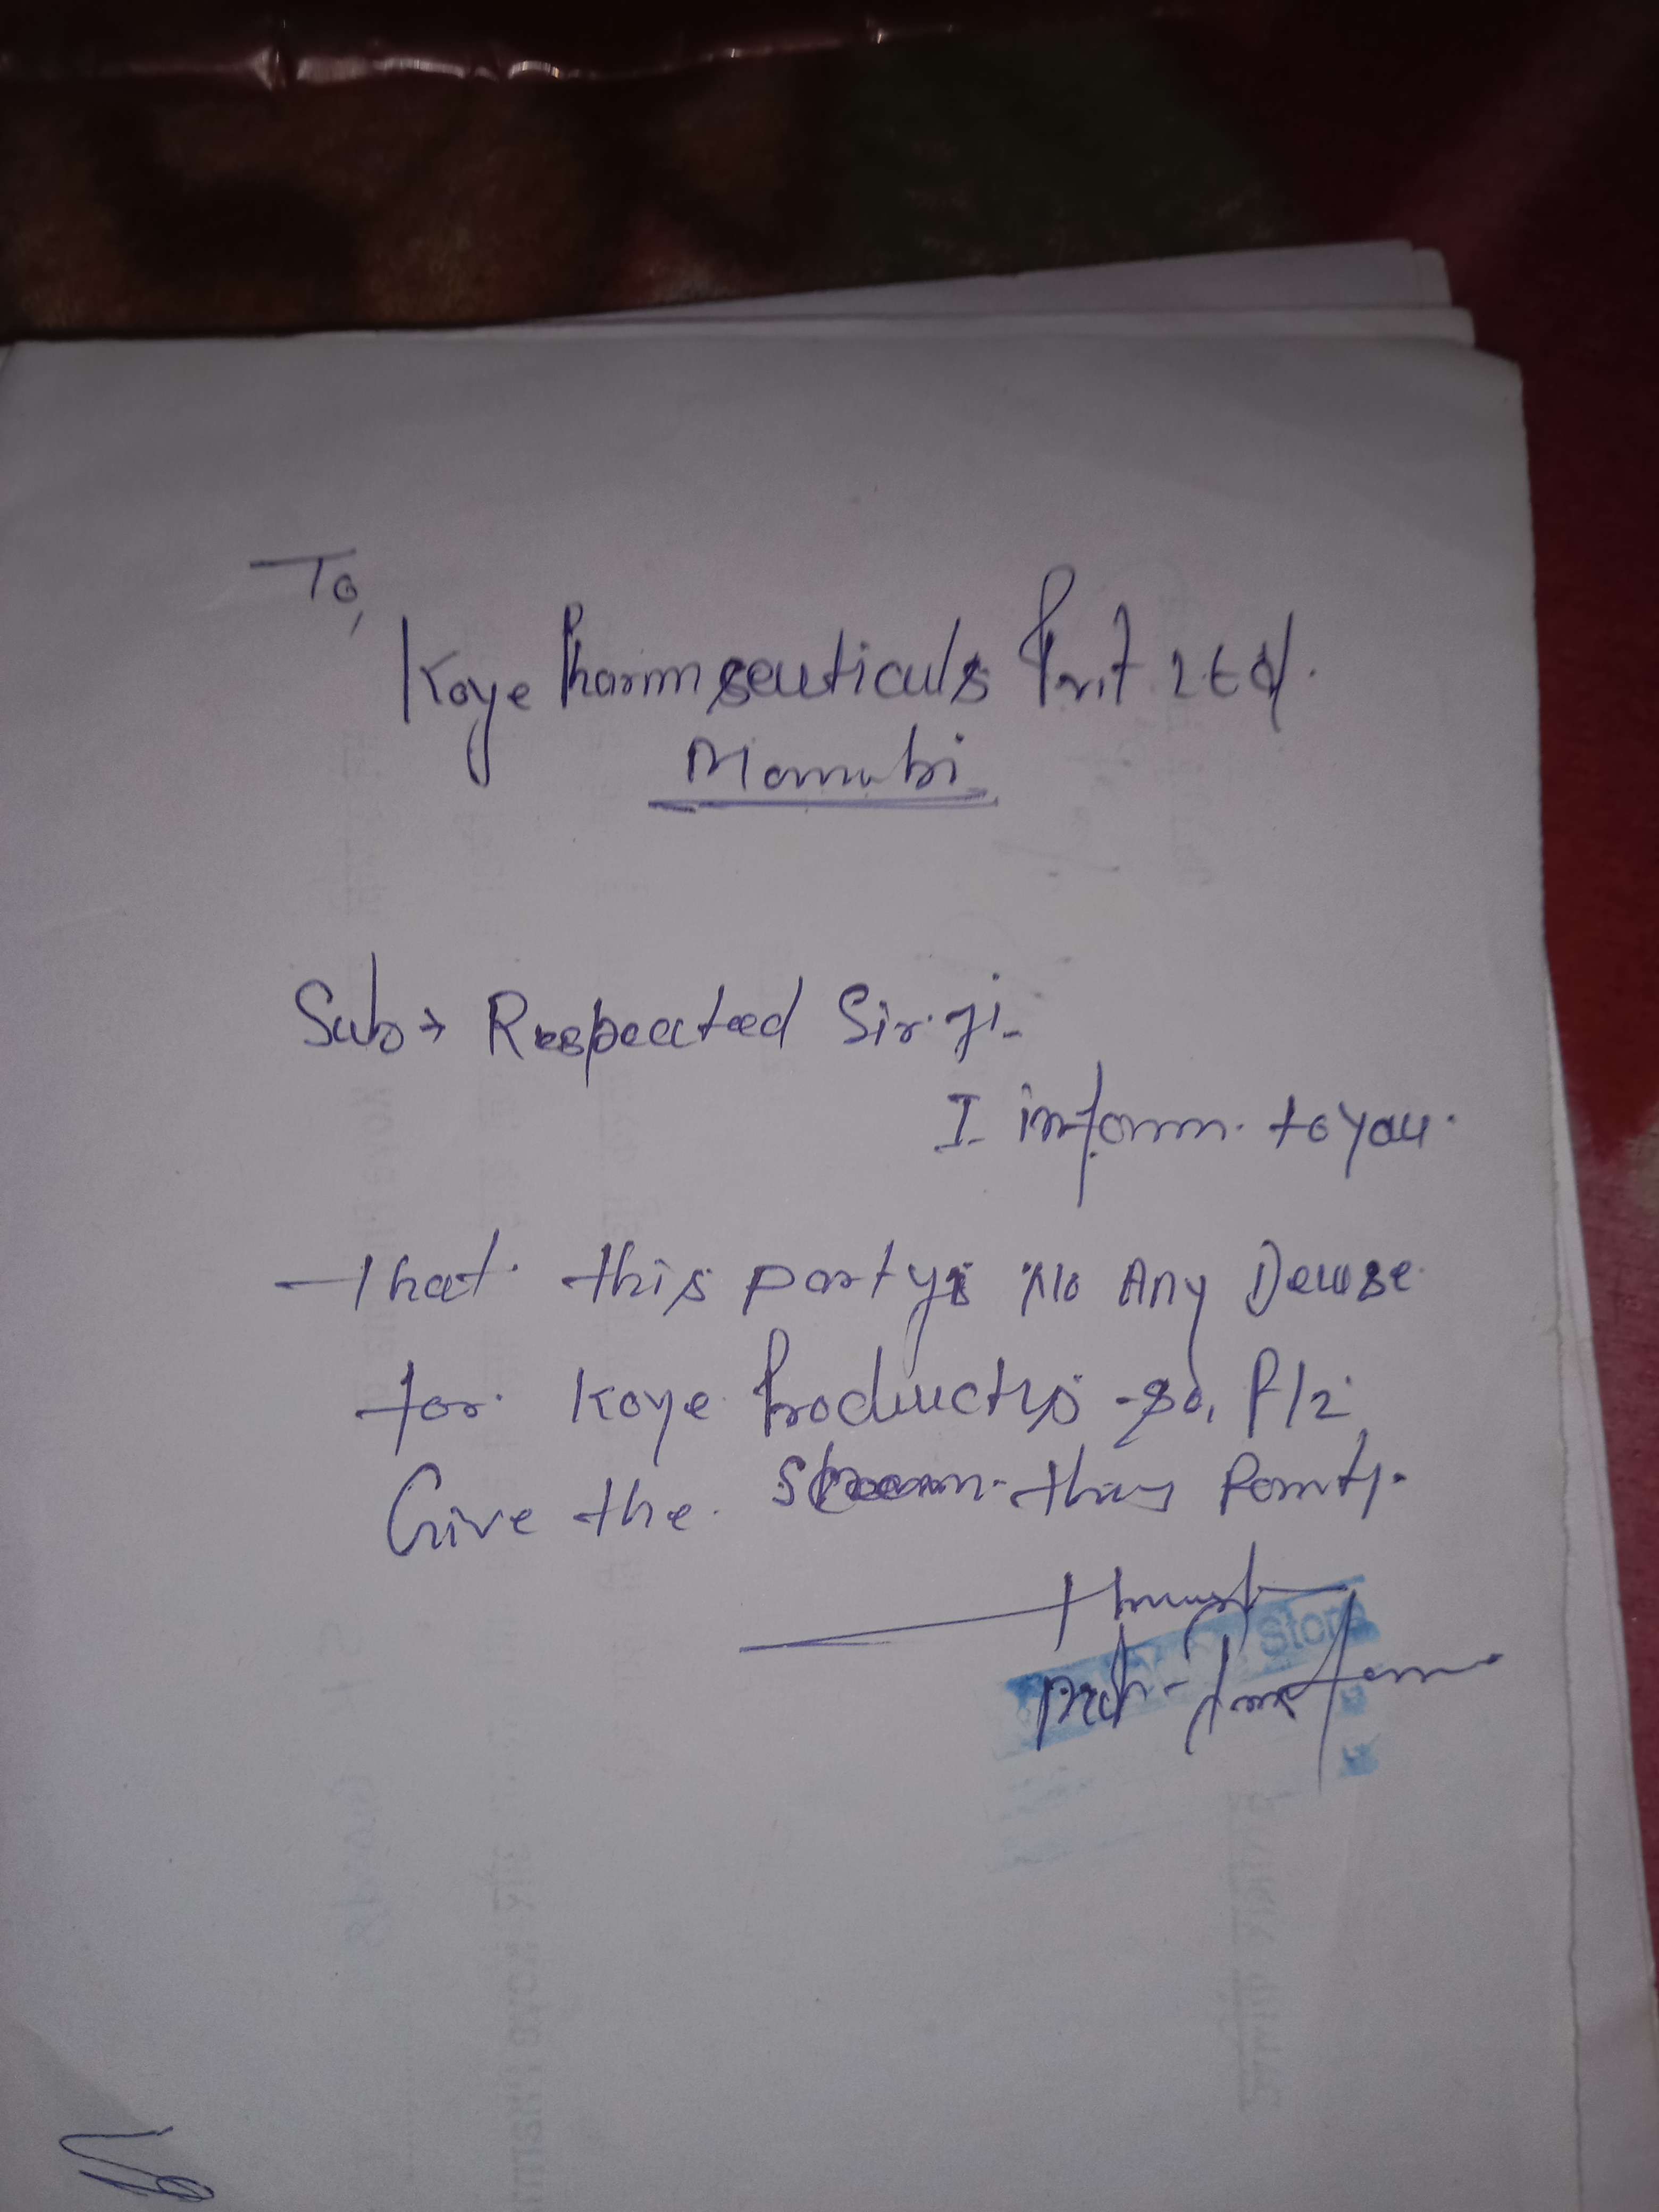 To,
Koye Pharmseuticuls Pvt Ltd.
Momubi
Sub → Respected Sir ji-
I inform. to you.
that this party No Any Dewse
for Koye Products so, Plz
Give the this Party.
Store